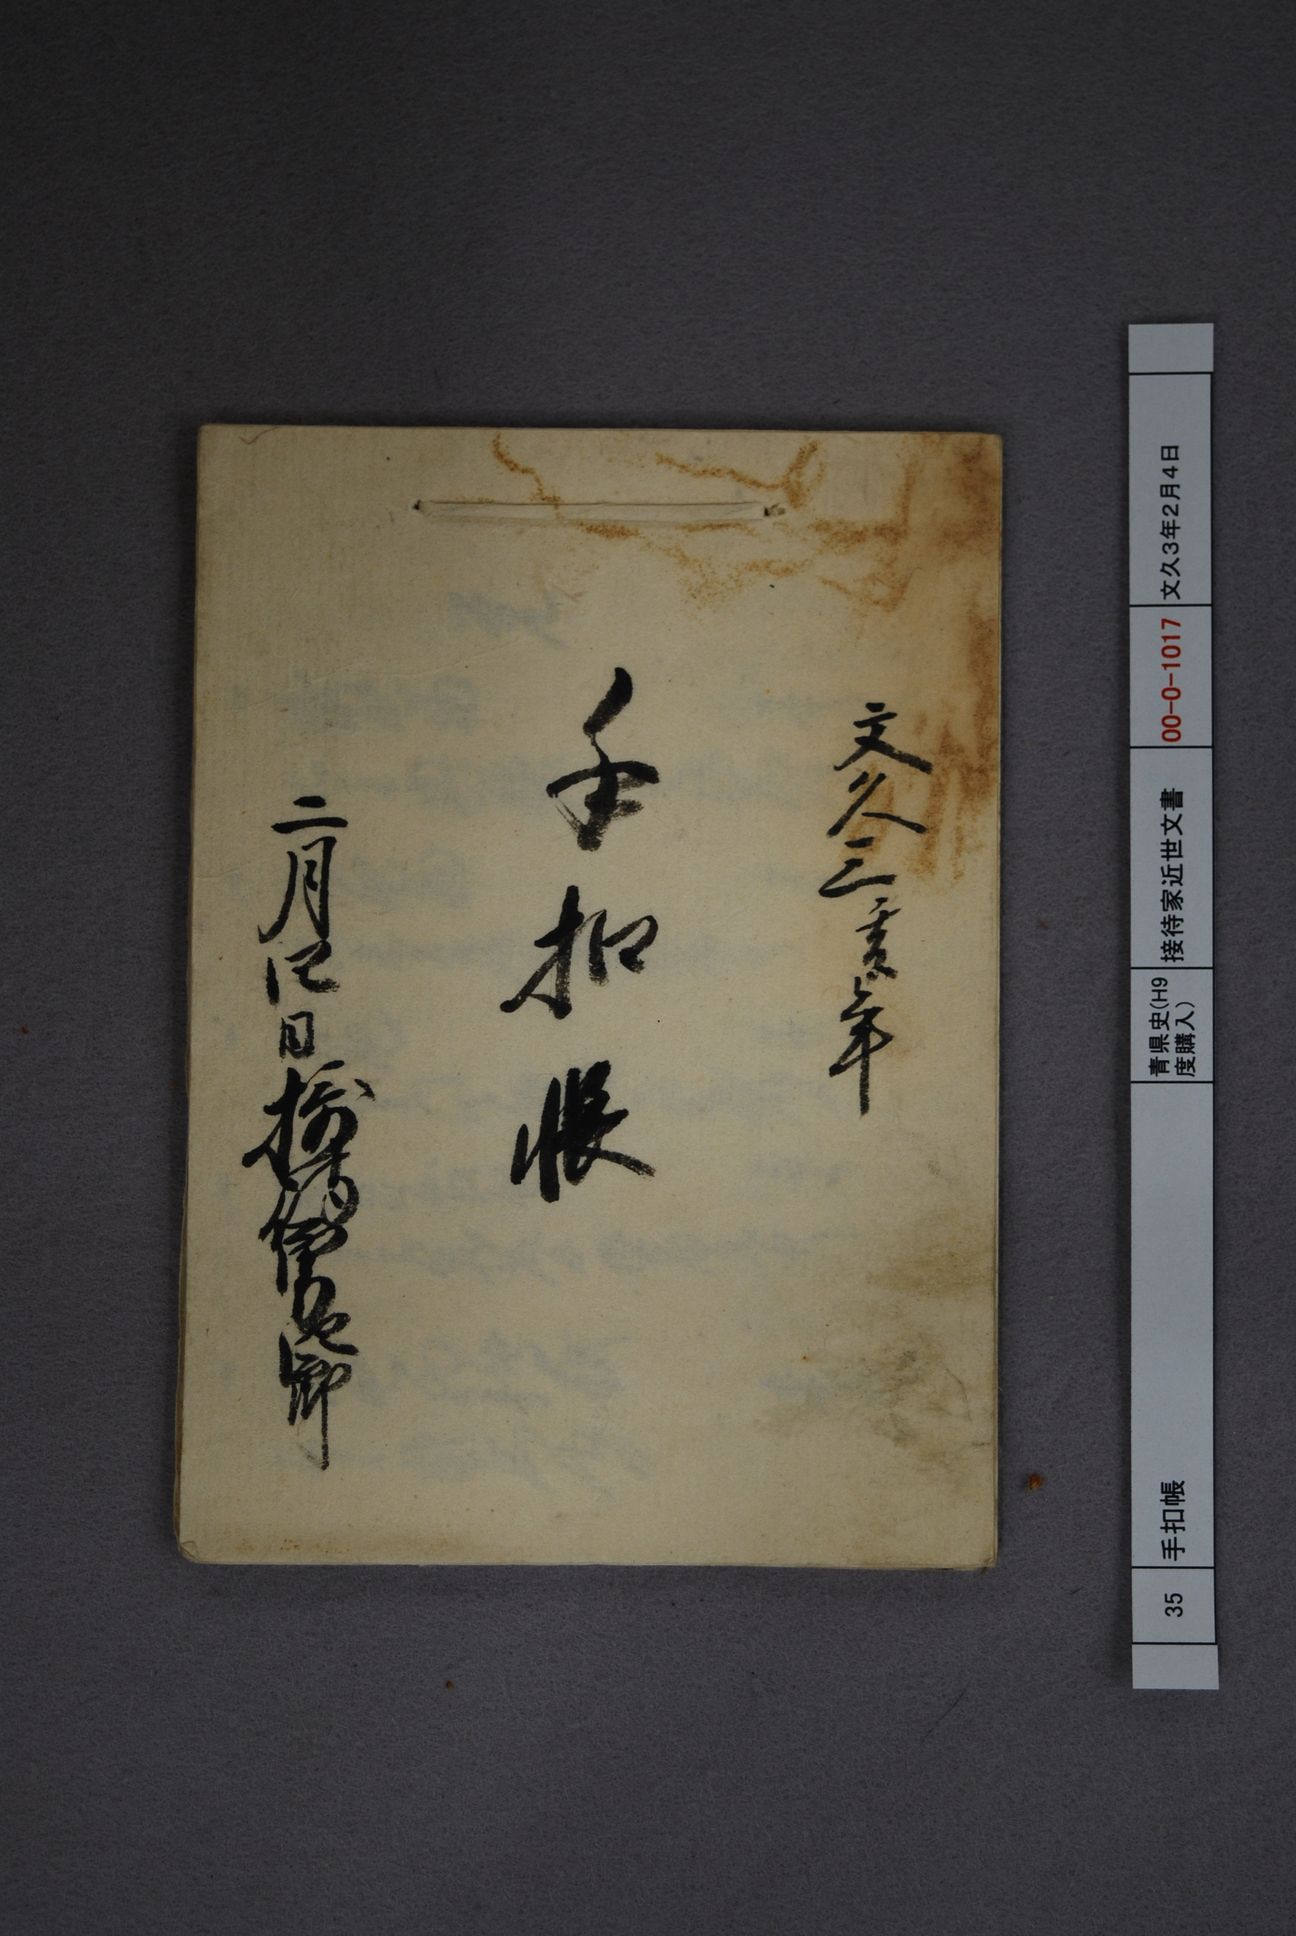 文久三亥年
手扣帳
二月四日
35
手扣帳
青県史(H9
度購入)
接待家近世文書
00-0-1017
文久3年2月4日